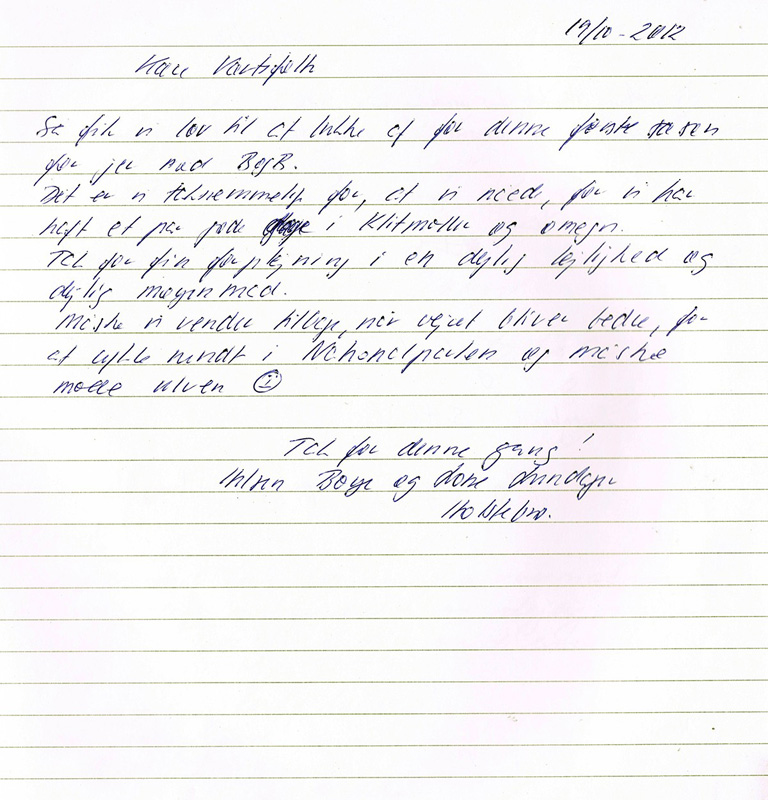 19/10-2012
Kære Værtsfolk
Så fik vi lov til at lukke af for denne første sæson
for jer med B&B.
Det er vi taknemmelig for, at vi nåede, for vi har
haft et par gode dage i Klitmøller og omegn.
Tak for fin forplejning i en dejlig lejlighed og
dejlig morgenmad.
Måske vi vender tilbage, når vejret bliver bedre, for
at cykle rundt i Nationalparken og måske
møde ulven ☺
Tak for denne gang!
Hilsen Børge og Lone
Holstebro.